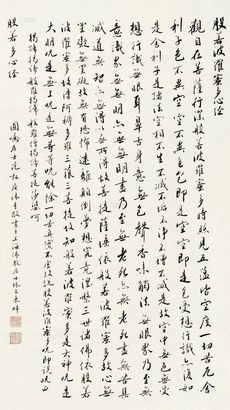 般若波羅蜜多心經
觀自在菩薩行深般若波羅蜜多時照見五蘊皆空度一切苦厄舍
利子色不異空空不異色色即是空空即是色受想行識亦復如
是舍利子是諸法空相不生不滅不垢不淨不增不減是故空中無色無受
想行識無眼耳鼻舌身意無色聲香味觸法無眼界乃至無
意識界無無明亦無無明盡乃至無老死亦無老死盡無苦集
滅道無智亦無得以無所得故菩提薩埵依般若波羅蜜多故心無
罣礙無罣礙故無有恐怖遠離顛倒夢想究竟涅槃三世諸佛依般若
波羅蜜多故得阿耨多羅三藐三菩提故知般若波羅蜜多是大神咒是
大明咒是無上咒是無等等咒能除一切苦真實不虛故說般若波羅蜜多咒即說咒曰
揭諦揭諦般羅揭諦般羅僧揭諦菩提莎婆呵
般若多心經